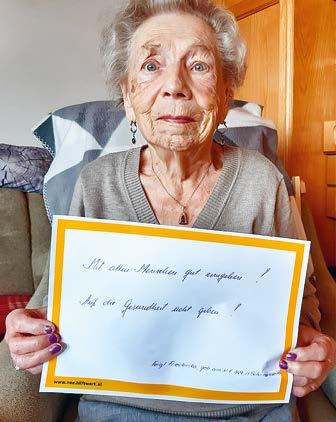 Mit allen Menschen gut umgehen !
Auf die Gesundheit acht geben !
www.noe.hilfswerk.at